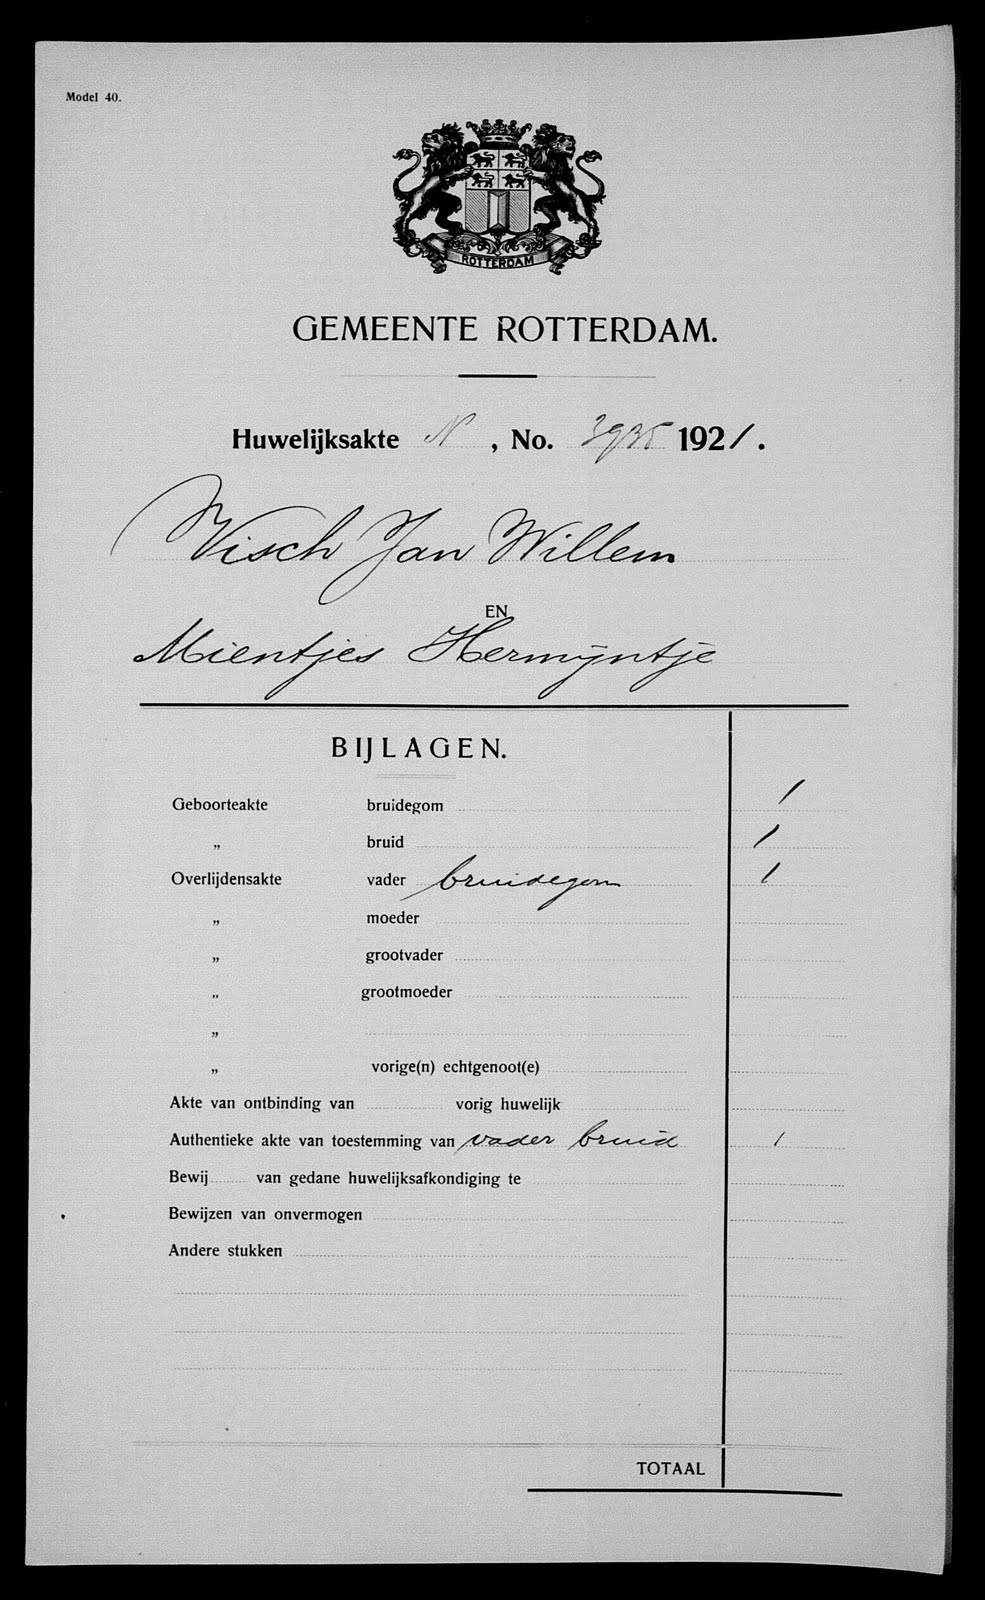 Model 40.
ROTTERDAM
GEMEENTE ROTTERDAM.
Huwelijksakte N , No. 3935 1921.
Visch Jan Willem
EN
Mientjes Hermijntje
BIJLAGEN.
Geboorteakte bruidegom 1
„ bruid 1
Overlijdensakte vader bruidegom 1
„ moeder
„ grootvader
„ grootmoeder
„
„ vorige(n) echtgenoot(e)
Akte van ontbinding van vorig huwelijk
Authentieke akte van toestemming van vader bruid 1
Bewij van gedane huwelijksafkondiging te
Bewijzen van onvermogen
Andere stukken
TOTAAL